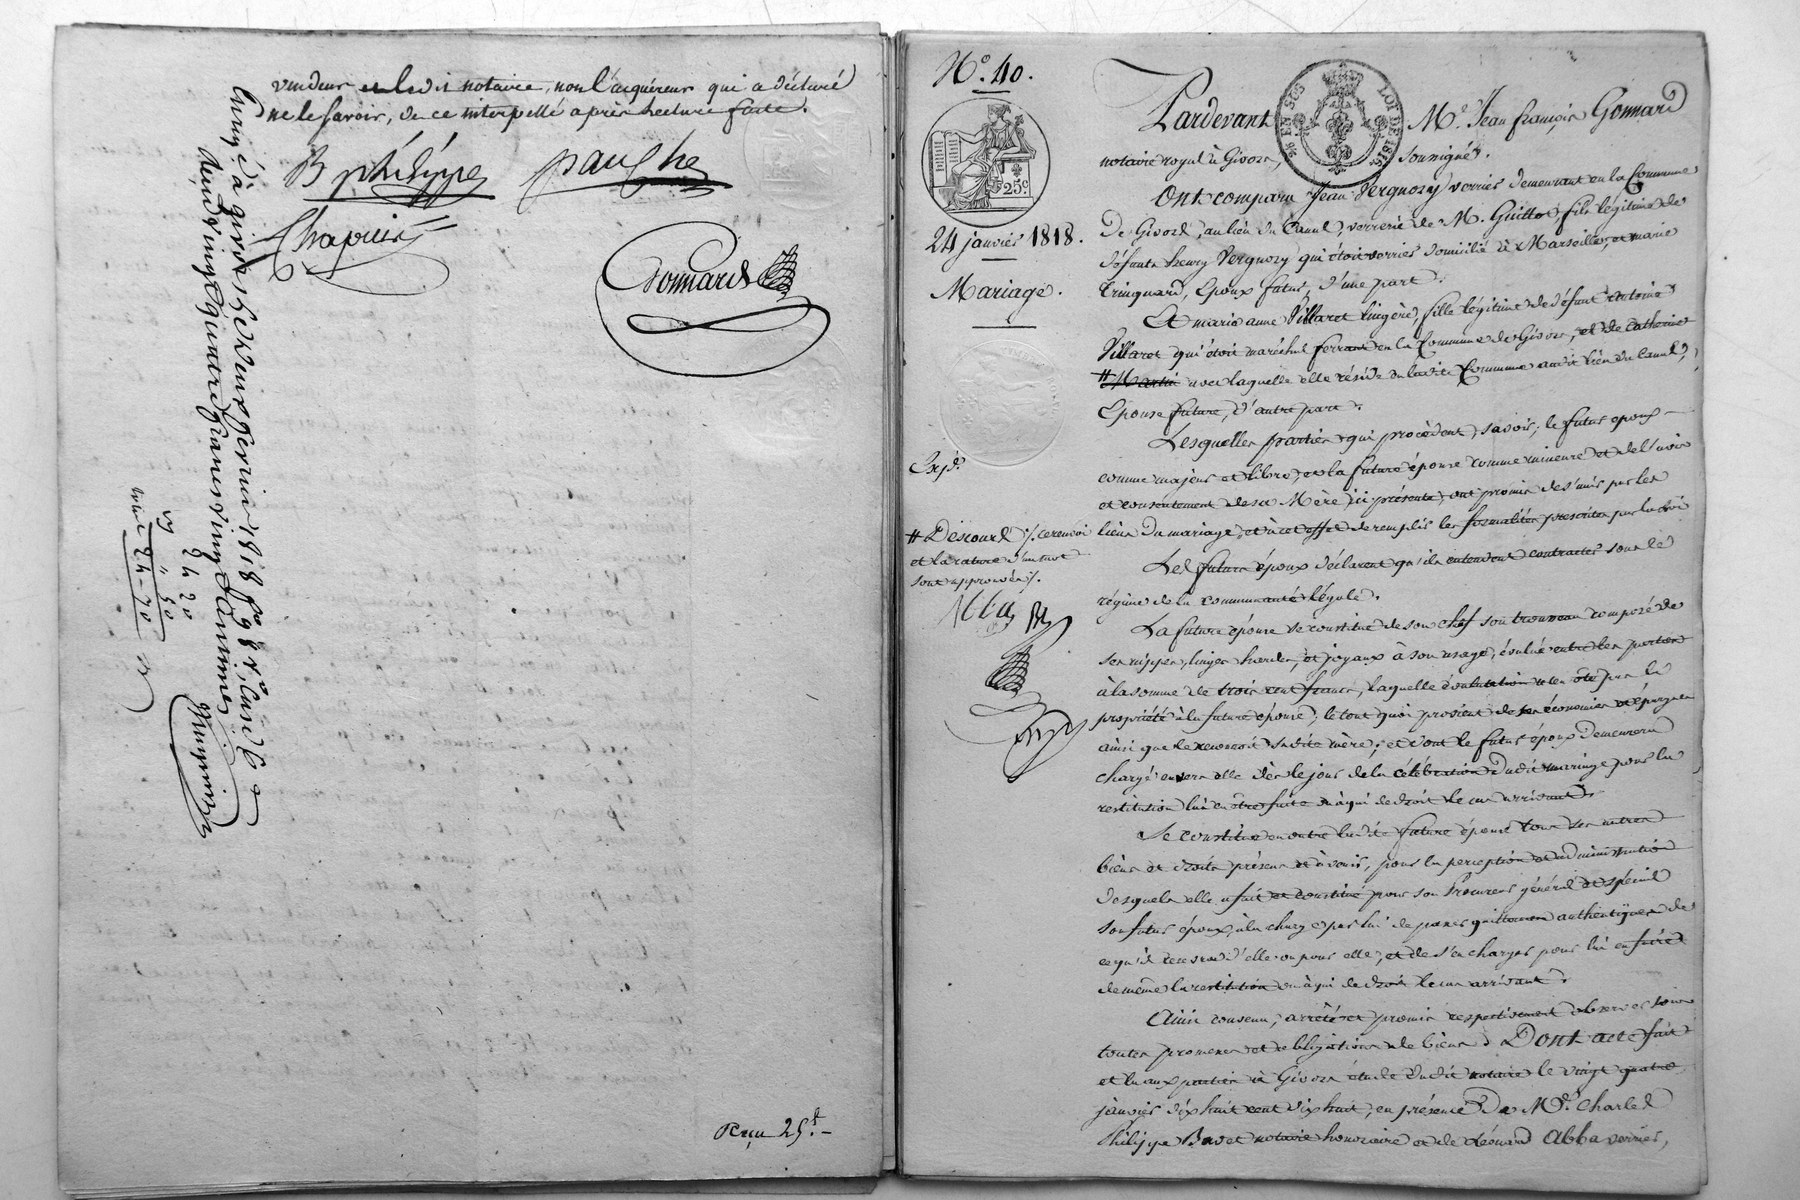 vendeur et ledit notaire, non l'acquéreur qui a déclaré
ne le savoir, de ce interpellé après lecture faite.
B philippe
Chapuis
Gonnard
Reçu 25.-
N.º 40.
25.c
24 janvier 1818.
Mariage.
Expé.
# Descours
et la rature d'un mot
sont approuvés /.
EN SUS LOI DE 1816
Pardevant M.e Jean françois Gonnard
notaire royal à Givors, soussigné.
Ont comparu Jean Vergnory verrier demeurant en la Commune
De Givors, au lieu du Canal, verrerie de M. Guillot, fils légitime de
défunt henry Vergnory qui étoit verrier domicilié à Marseille, et marie
Tringuard, Epoux futur, d'une part.
Et marie anne Villaret lingère, fille légitime de défunt antoine
Villaret qui étoit maréchal ferrant en la Commune de Givors, et de Catherine
# Martin avec laquelle elle réside en ladite Commune audit lieu du Canal,
Epouse future, d'autre part.
Lesquelles parties qui procèdent, savoir; le futur epoux
comme majeur et libre, et la future épouse comme mineure et de l'avis
et consentement de sa Mère ici présente, ont promis de s'unir par les
liens du mariage, et à cet effet de remplir les formalités prescrites par la loi
Les futurs époux déclarent qu'ils entendent contracter sous le
régime de la communauté légale.
La future épouse se constitue de son chef son trousseau composé de
ses nippes, linges hardes, et joyaux à son usage, évalué entre les parties
à la somme de trois cent francs, laquelle évaluation n'en ôte pas la
propriété à la future épouse, le tout quoi provient de ses économies et épargnes
ainsi que le reconnoit sadite mère; et dont le futur époux demeurera
chargé envers elle dès le jour de la célébration dudit mariage pour la
restitution lui en être faite ou à qui de droit le cas arrivant.
Se constitue en outre ladite future épouse tous ses autres
biens et droits présens et à venir, pour la perception et administration
desquels elle a fait et constitué pour son Procureur général et spécial
son futur époux, à la charge par lui de passer quittances authentiques de
ce qu'il recevra d'elle ou pour elle, et de s'en charger pour lui en faire
de même la restitution ou à qui de droit le cas arrivant.
Ainsi convenu, arrêté et promis respectivement observer sous
toutes promesses et obligations de biens. Dont acte fait
et lu aux parties à Givors étude dudit notaire le vingt quatre
janvier dix huit cent dix huit, en présence De M.r Charles
Philippe Bovet notaire honoraire et de Léonard Abba verrier,